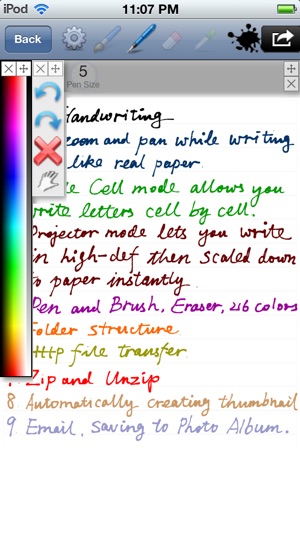 iPod 11:07 PM
Back
5
Pen Size
Handwriting
zoom and pan while writing
like real paper.
Cell mode allows you
write letters cell by cell.
Projector mode lets you write
in high-def then scaled down
to paper instantly
Pen and Brush, Eraser, 216 colors
Folder structure
HTTP file transfer
7. Zip and Unzip
8 Automatically creating thumbnail
9. Email, Saving to Photo Album.